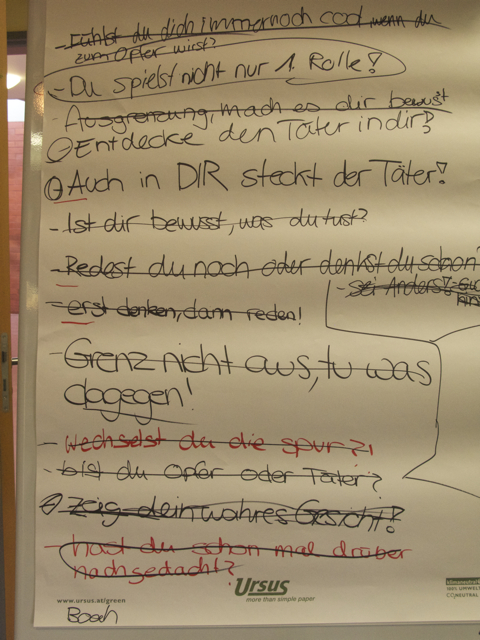 - Fühlst du dich immernoch cool, wenn du
zum Opfer wirst?
- Du spielst nicht nur 1 Rolle!
- Ausgrenzung, mach es dir bewusst
Entdecke den Täter in dir?
Auch in DIR steckt der Täter!
- Ist dir bewusst, was du tust?
- Redest du noch oder denkst du schon?
- Sei Anders!
- erst denken, dann reden!
- Grenz nicht aus, tu was
dagegen!
- wechselst du die spur?!
- bist du Opfer oder Täter?
Zeig dein wahres Gesicht!
- hast du schon mal drüber
nachgedacht?
Ursus
more than simple paper
www.ursus.at/green